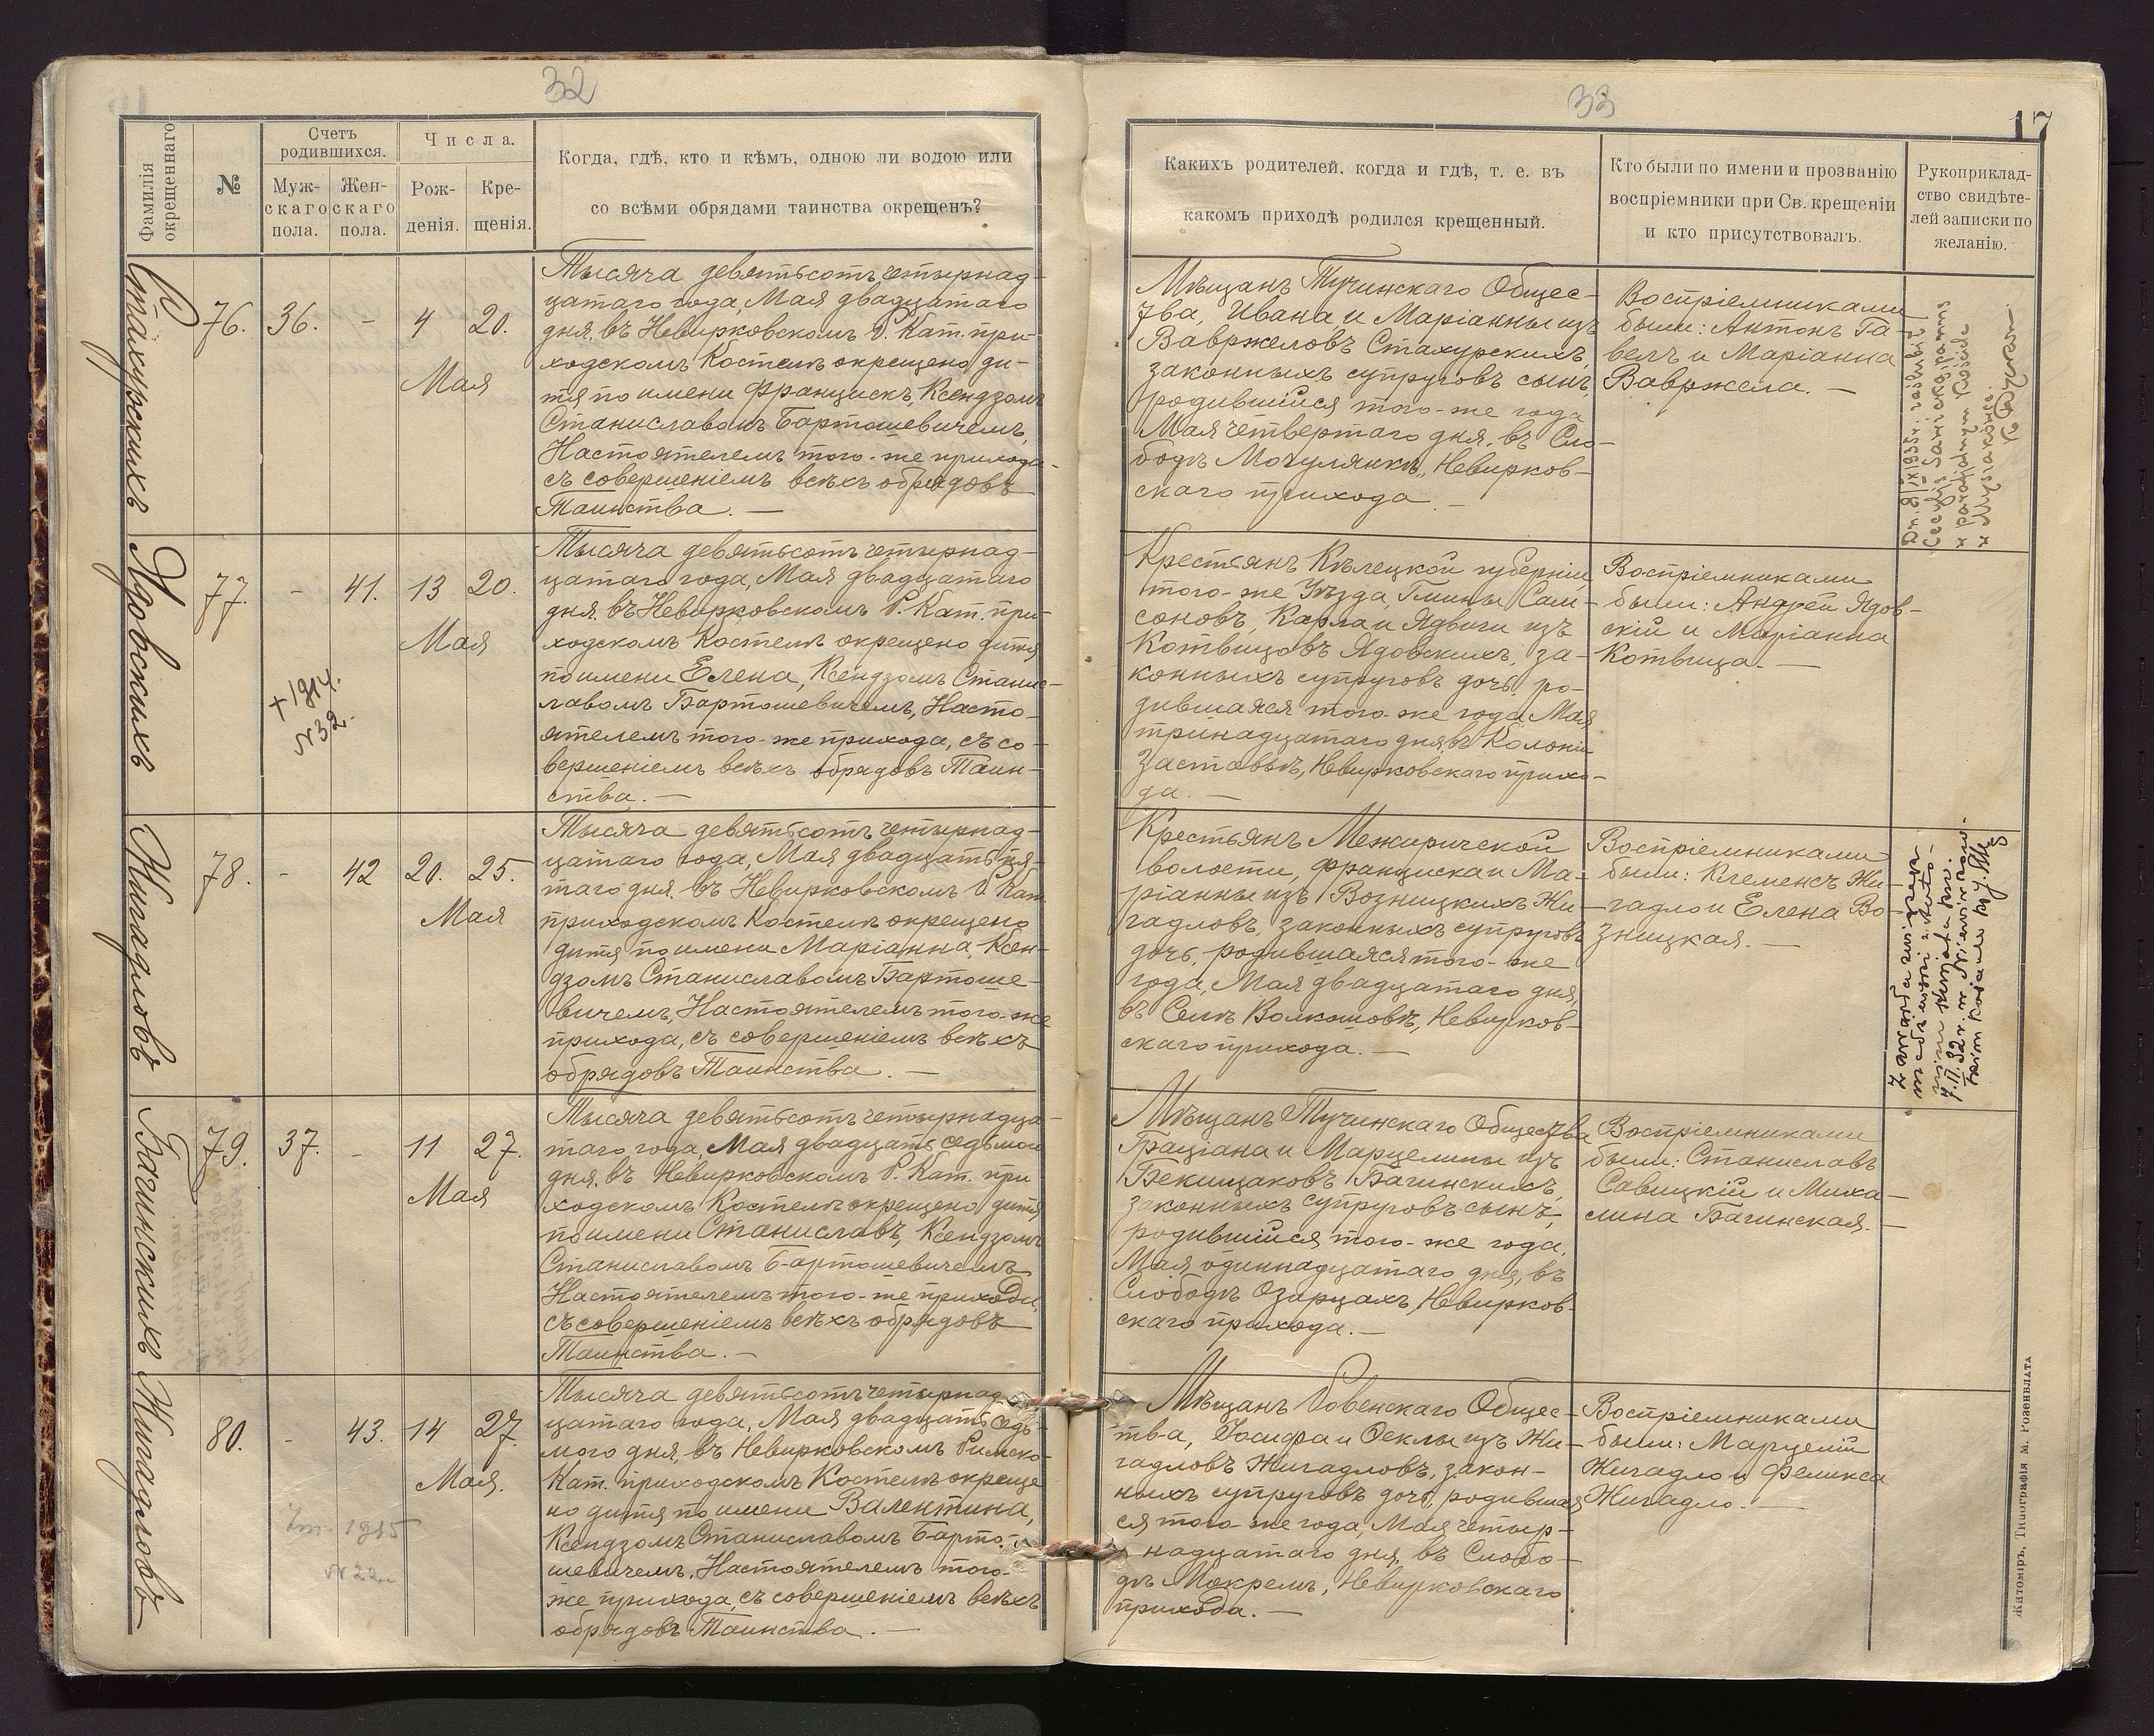 32
Фамилія окрещеннаго
№
Счетъ родившихся.
Муж-
скаго
пола.
Жен-
скаго
пола.
Числа.
Рож-
денія.
Кре-
щенія.
Когда, гдѣ, кто и кѣмъ, одною ли водою или
со всѣми обрядами таинства окрещенъ?
Стахурскихъ
76.
36.
-
4
20.
Мая
Тысяча девятьсотъ четырнад-
цатаго года, Мая двадцатаго
дня, въ Невирковскомъ Р. Кат. при-
ходскомъ Костелѣ окрещено ди-
тя по имени Францискъ, Ксендзомъ
Станиславомъ Бартошевичемъ,
Настоятелемъ того-же прихода
съ совершеніемъ всѣхъ обрядовъ
Таинства. —
Ядовскихъ
77.
-
41.
13
20.
Мая
+ 1914.
N 32.
Тысяча девятьсотъ четырнад-
цатаго года, Мая двадцатаго
дня, въ Невирковскомъ Р. Кат. при-
ходскомъ Костелѣ окрещено дитя
по имени Елена, Ксендзомъ Станис-
лавомъ Бартошевичемъ, Насто-
ятелемъ того-же прихода, съ со-
вершеніемъ всѣхъ обрядовъ Таин-
ства. —
Жигадловъ
78.
-
42
20.
25.
Мая
Тысяча девятьсотъ четырнад-
цатаго года, Мая двадцать пя-
таго дня, въ Невирковскомъ Р. Кат.
приходскомъ Костелѣ окрещено
дитя по имени Маріанна, Ксен-
дзомъ Станиславомъ Бартоше-
вичемъ, Настоятелемъ того-же
прихода, съ совершеніемъ всѣхъ
обрядовъ Таинства. —
Багинскихъ
79.
37.
-
11
27.
Мая
Тысяча девятьсотъ четырнадца-
таго года, Мая двадцать седьмого
дня, въ Невирковскомъ Р. Кат. при
ходскомъ Костелѣ окрещено дитя
по имени Станиславъ, Ксендзомъ
Станиславомъ Бартошевичемъ,
Настоятелемъ того-же прихода,
съ совершеніемъ всѣхъ обрядовъ
Таинства. —
Жигадловъ
80.
-
43.
14
27.
Мая.
1915
N 22
Тысяча девятьсотъ четырнад
цатаго года, Мая двадцать седь-
мого дня, въ Невирковскомъ Римско-
Кат. приходскомъ Костелѣ окреще
но дитя по имени Валентина,
Ксендзомъ Станиславомъ Барто-
шевичемъ, Настоятелемъ того-
же прихода, съ совершеніемъ всѣхъ
обрядовъ Таинства. —
33
17
Какихъ родителей, когда и гдѣ, т. е. въ
какомъ приходѣ родился крещенный.
Кто были по имени и прозванію
воспріемники при Св. крещеніи
и кто присутствовалъ.
Рукоприклад-
ство свидѣте-
лей записки по
желанію.
Мѣщанъ Тучинскаго Общес-
тва, Ивана и Маріанны изъ
Вавржеловъ Стахурскихъ,
законныхъ супруговъ сынъ,
родившійся того-же года
Мая четвертаго дня, въ Сло-
бодѣ Могулянкѣ, Невирков-
скаго прихода. —
Воспріемниками
были: Антонъ Га-
велъ и Маріанна
Вавржела. —
Крестьянъ Кѣлецкой губерніи,
того-же Уѣзда, Гмины Сам-
соновъ, Карла и Ядвиги изъ
Котвицовъ Ядовскихъ, за-
конныхъ супруговъ дочь, ро-
дившаяся того-же года, Мая
тринадцатаго дня, въ Колоніи
Заставье, Невирковскаго прихо-
да. —
Воспріемниками
были: Андрей Ядов-
скій и Маріанна
Котвица. —
Крестьянъ Межиричской
волости, Франциска и Ма-
ріанны изъ Возницкихъ Жи-
гадловъ, законныхъ супруговъ
дочь, родившаяся того-же
года, Мая двадцатаго дня,
въ Селѣ Волкошовѣ, Невирков-
скаго прихода. —
Воспріемниками
были: Клеменсъ Жи-
гадло и Елена Во-
зницкая. —
Мѣщанъ Тучинскаго Общества
Граціана и Марцелины изъ
Бекищаковъ Багинскихъ,
законныхъ супруговъ сынъ,
родившійся того-же года,
Мая одиннадцатаго дня, въ
Слободѣ Озирцахъ, Невирков-
скаго прихода. —
Воспріемниками
были: Станиславъ
Савицкій и Миха-
лина Багинская. —
Мѣщанъ Ровенскаго Общес-
тва, Іосифа и Ѳеклы изъ Жи-
гадловъ Жигадловъ, закон-
ныхъ супруговъ дочь, родившая
ся того-же года, Мая четыр-
надцатаго дня, въ Слобо-
дѣ Мокремъ, Невирковскаго
прихода. —
Воспріемниками
были: Марцелій
Жигадло и Феликса
Жигадло. —
Житоміръ, Типографія М. Розенблата